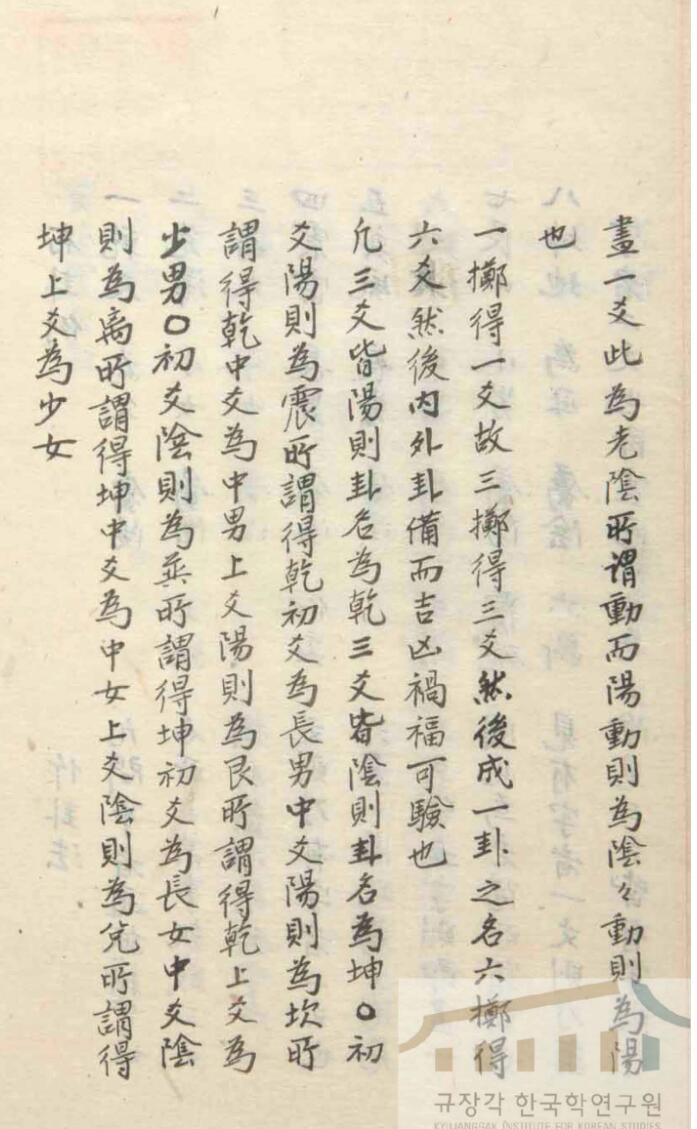 畫一爻此為老陰所謂動而陽動則為陰々動則為陽
也
一擲得一爻故三擲得三爻然後成一卦之名六擲得
六爻然後內外卦備而吉凶禍福可驗也
凡三爻皆陽則卦名為乾三爻皆陰則卦名為坤○初
爻陽則為震所謂得乾初爻為長男中爻陽則為坎所
謂得乾中爻為中男上爻陽則為艮所謂得乾上爻為
少男○初爻陰則為巽所謂得坤初爻為長女中爻陰
則為离所謂得坤中爻為中女上爻陰則為兌所謂得
坤上爻為少女
규장각 한국학연구원
KYUJANGGAK INSTITUTE FOR KOREAN STUDIES